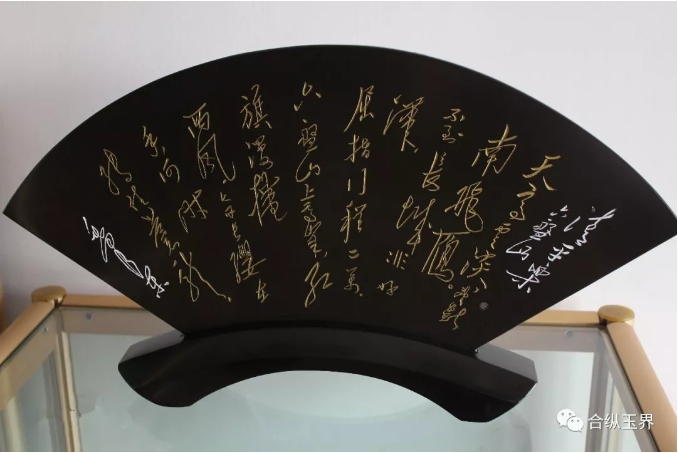 清平樂
六盤山
天高雲淡望断
南飛雁。
不到長城非好
漢,
屈指行程二万。
六盤山上高峯红
旗漫捲
西风今日長纓在
手何时
缚住苍龙
毛泽东
合纵玉界